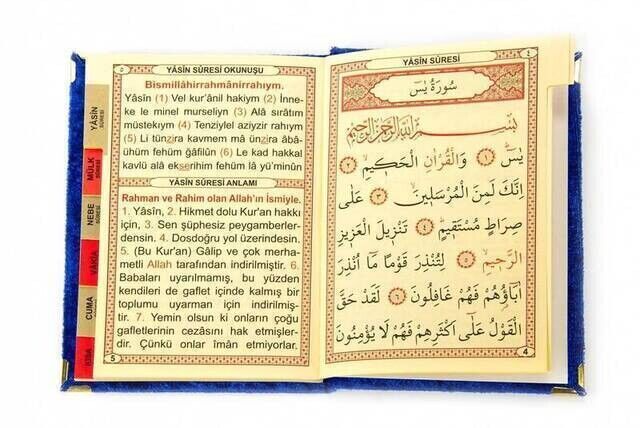 YÂSİN SÛRESİ
٤
سُورَةُ يٰسٓ
بِسْمِ اللّٰهِ الرَّحْمٰنِ الرَّحِيمِ
يٰسٓ ﴿١﴾ وَالْقُرْاٰنِ الْحَكِيمِ ﴿٢﴾
اِنَّكَ لَمِنَ الْمُرْسَلِينَ ﴿٣﴾ عَلٰى
صِرَاطٍ مُسْتَقِيمٍ ﴿٤﴾ تَنْزِيلَ الْعَزِيزِ
الرَّحِيمِ ﴿٥﴾ لِتُنْذِرَ قَوْمًا مَٓا اُنْذِرَ
اٰبَٓاؤُهُمْ فَهُمْ غَافِلُونَ ﴿٦﴾ لَقَدْ حَقَّ
الْقَوْلُ عَلٰٓى اَكْثَرِهِمْ فَهُمْ لَا يُؤْمِنُونَ
4
٥
YÂSİN SÛRESİ OKUNUŞU
Bismillâhirrahmânirrahıym.
Yâsîn (1) Vel kur'ânil hakiym (2) İnne-
ke le minel murseliyn (3) Alâ sıratım
müstekıym (4) Tenziylel aziyzir rahıym
(5) Li tünzira kavmem mâ ünzira âbâ-
ühüm fehüm ğâfilûn (6) Le kad hakkal
kavlü alâ ekserihim fehüm lâ yü'minûn
YÂSİN SÛRESİ ANLAMI
Rahman ve Rahim olan Allah'ın İsmiyle.
1. Yâsîn, 2. Hikmet dolu Kur'an hakkı
için, 3. Sen şüphesiz peygamberler-
densin. 4. Dosdoğru yol üzerindesin.
5. (Bu Kur'an) Gâlip ve çok merha-
metli Allah tarafından indirilmiştir. 6.
Babaları uyarılmamış, bu yüzden
kendileri de gaflet içinde kalmış bir
toplumu uyarman için indirilmiş-
tir. 7. Yemin olsun ki onların çoğu
gafletlerinin cezasını hak etmişler-
dir. Çünkü onlar îmân etmiyorlar.
5
YÂSİN
SÛRESİ
MÜLK
SÛRESİ
NEBE
SÛRESİ
VÂKIA
CUMA
KISA